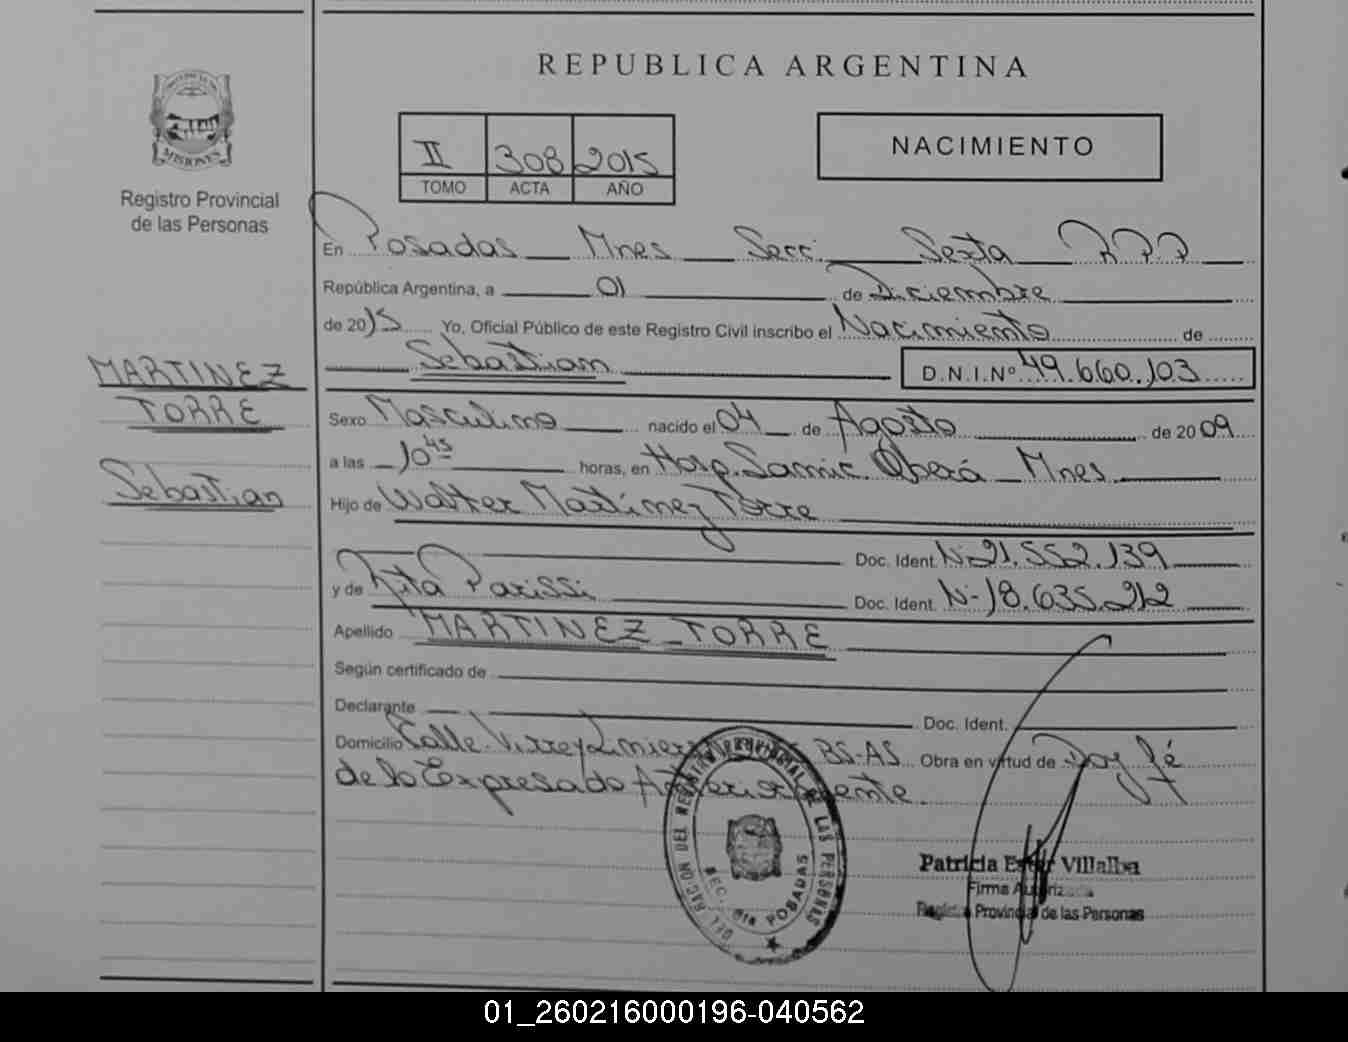 REPUBLICA ARGENTINA
MISIONES
Registro Provincial
de las Personas
II 308 2015
TOMO ACTA AÑO
NACIMIENTO
En Posadas Mnes Secc. Sexta RPP
República Argentina, a 01 de Diciembre
de 2015 Yo, Oficial Público de este Registro Civil inscribo el Nacimiento de
Sebastian D.N.I.Nº 49.660.103
MARTINEZ
TORRE
Sebastian
Sexo Masculino nacido el 04 de Agosto de 2009
a las 10 45 horas, en Hosp. Samic. Oberá Mnes
Hijo de Walter Martínez Torre
Doc. Ident. N-21.552.139
y de Rita Parissi Doc. Ident. N-18.635.212
Apellido MARTINEZ TORRE
Según certificado de
Declarante Doc. Ident.
Domicilio Calle. Virrey BS-AS Obra en virtud de Doy fé
de lo Expresado Anteriormente.
REGISTRO PROVINCIAL DE LAS PERSONAS
SEC. 6ta POSADAS
Patricia Ester Villalba
Firma Autorizada
Registro Provincial de las Personas
01_260216000196-040562